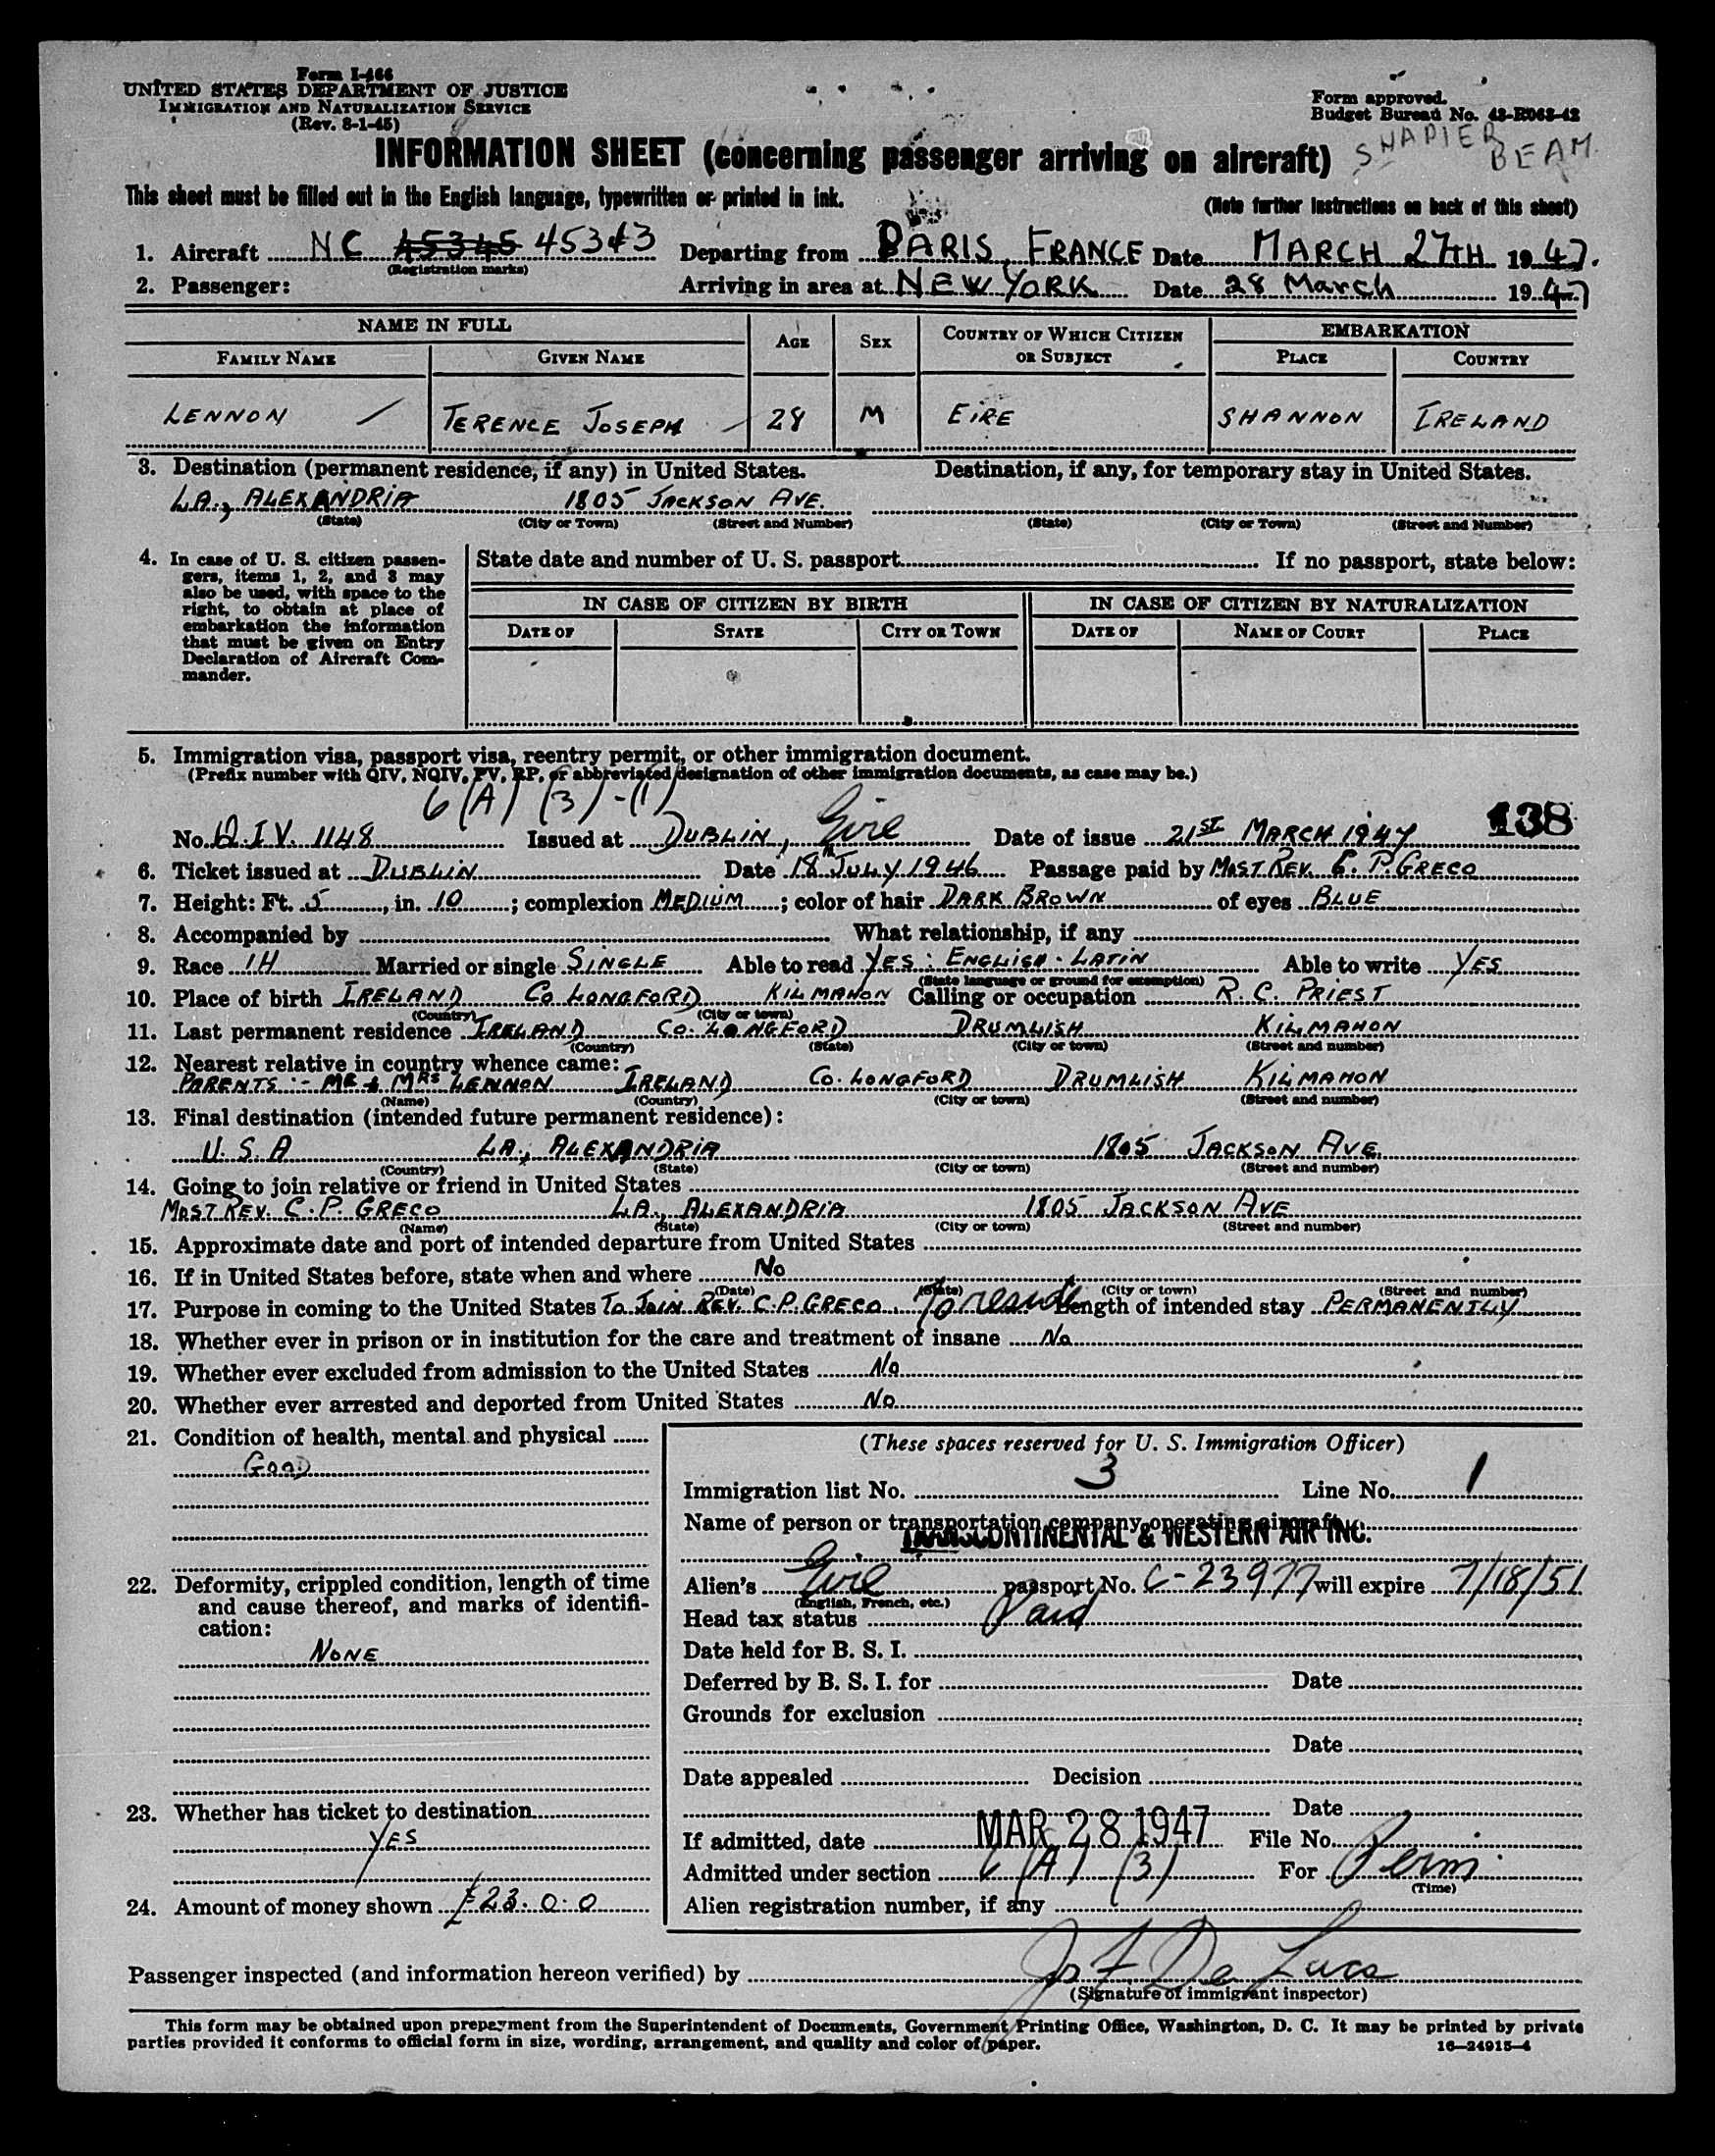 Form I-466
UNITED STATES DEPARTMENT OF JUSTICE
IMMIGRATION AND NATURALIZATION SERVICE
(Rev. 8-1-45)
Form approved.
Budget Bureau No. 43-R063-42
INFORMATION SHEET (concerning passenger arriving on aircraft)
SHAPIER BEAM
This sheet must be filled out in the English language, typewritten or printed in ink.
(Note further instructions on back of this sheet)
1. Aircraft NC 45345 45343 Departing from PARIS, FRANCE Date MARCH 27TH 1947.
(Registration marks)
2. Passenger: Arriving in area at NEW YORK Date 28 March 1947
NAME IN FULL AGE SEX COUNTRY OF WHICH CITIZEN OR SUBJECT EMBARKATION
FAMILY NAME GIVEN NAME PLACE COUNTRY
LENNON TERENCE JOSEPH 28 M EIRE SHANNON IRELAND
3. Destination (permanent residence, if any) in United States. Destination, if any, for temporary stay in United States.
LA., ALEXANDRIA 1805 JACKSON AVE.
(State) (City or Town) (Street and Number) (State) (City or Town) (Street and Number)
4. In case of U. S. citizen passengers, items 1, 2, and 3 may also be used, with space to the right, to obtain at place of embarkation the information that must be given on Entry Declaration of Aircraft Commander.
State date and number of U. S. passport If no passport, state below:
IN CASE OF CITIZEN BY BIRTH IN CASE OF CITIZEN BY NATURALIZATION
DATE OF STATE CITY OR TOWN DATE OF NAME OF COURT PLACE
5. Immigration visa, passport visa, reentry permit, or other immigration document.
(Prefix number with QIV, NQIV, PV, RP, or abbreviated designation of other immigration documents, as case may be.)
6(A) (3)-(1)
138
No. Q.I.V. 1148 Issued at DUBLIN, Eire Date of issue 21ST MARCH 1947
6. Ticket issued at DUBLIN Date 18TH JULY 1946 Passage paid by MOST REV. C. P. GRECO
7. Height: Ft. 5, in. 10; complexion MEDIUM; color of hair DARK BROWN of eyes BLUE
8. Accompanied by What relationship, if any
9. Race IH Married or single SINGLE Able to read YES: ENGLISH. LATIN Able to write YES
(State language or ground for exemption)
10. Place of birth IRELAND CO LONGFORD KILMAHON Calling or occupation R. C. PRIEST
(Country) (City or town)
11. Last permanent residence IRELAND CO. LONGFORD DRUMLISH KILMAHON
(Country) (State) (City or town) (Street and number)
12. Nearest relative in country whence came:
PARENTS:- MR & MRS LENNON IRELAND CO. LONGFORD DRUMLISH KILMAHON
(Name) (Country) (City or town) (Street and number)
13. Final destination (intended future permanent residence):
U. S. A LA., ALEXANDRIA 1805 JACKSON AVE.
(Country) (State) (City or town) (Street and number)
14. Going to join relative or friend in United States
MOST REV. C. P. GRECO LA., ALEXANDRIA 1805 JACKSON AVE
(Name) (State) (City or town) (Street and number)
15. Approximate date and port of intended departure from United States
16. If in United States before, state when and where No
(Date) (State) (City or town) (Street and number)
17. Purpose in coming to the United States TO JOIN REV. C.P. GRECO To reside Length of intended stay PERMANENTLY
18. Whether ever in prison or in institution for the care and treatment of insane No
19. Whether ever excluded from admission to the United States No
20. Whether ever arrested and deported from United States No
21. Condition of health, mental and physical
GOOD
22. Deformity, crippled condition, length of time and cause thereof, and marks of identification:
NONE
23. Whether has ticket to destination
YES
24. Amount of money shown £23.0.0
(These spaces reserved for U. S. Immigration Officer)
Immigration list No. 3 Line No. 1
Name of person or transportation company operating aircraft
TRANSCONTINENTAL & WESTERN AIR INC.
Alien's Eire passport No. C-23977 will expire 7/18/51
(English, French, etc.)
Head tax status Paid
Date held for B. S. I.
Deferred by B. S. I. for Date
Grounds for exclusion
Date
Date appealed Decision
Date
If admitted, date MAR 28 1947 File No.
Admitted under section 6(A) (3) For Perm.
(Time)
Alien registration number, if any
Passenger inspected (and information hereon verified) by De Luca
(Signature of immigrant inspector)
This form may be obtained upon prepayment from the Superintendent of Documents, Government Printing Office, Washington, D. C. It may be printed by private
parties provided it conforms to official form in size, wording, arrangement, and quality and color of paper.
16—24915-4